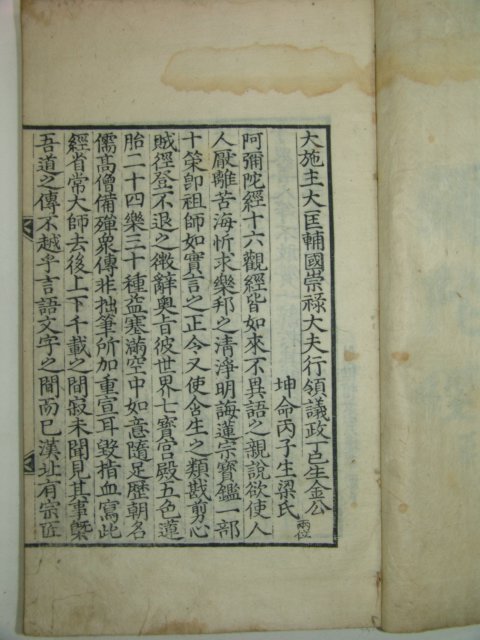 大施主大匡輔國崇祿大夫行領議政丁巳生金公
坤命丙子生梁氏 兩位
阿彌陀經十六觀經皆如來不異語之親說欲使人
人厭離苦海忻求樂邦之清淨明誨蓮宗寶鑑一部
十策卽祖師如實言之正令又使含生之類戡剪心
賊徑登不退之徵辭奧旨彼世界七寶宮殿五色蓮
胎二十四樂三十種益塞滿空中如意隨足歷朝名
儒高僧備殫衆傳非拙筆所加重宣耳毀指血寫此
經省常大師去後上下千載之間寂未聞見其事槩
吾道之傳不越乎言語文字之間而已漢址有宗匠